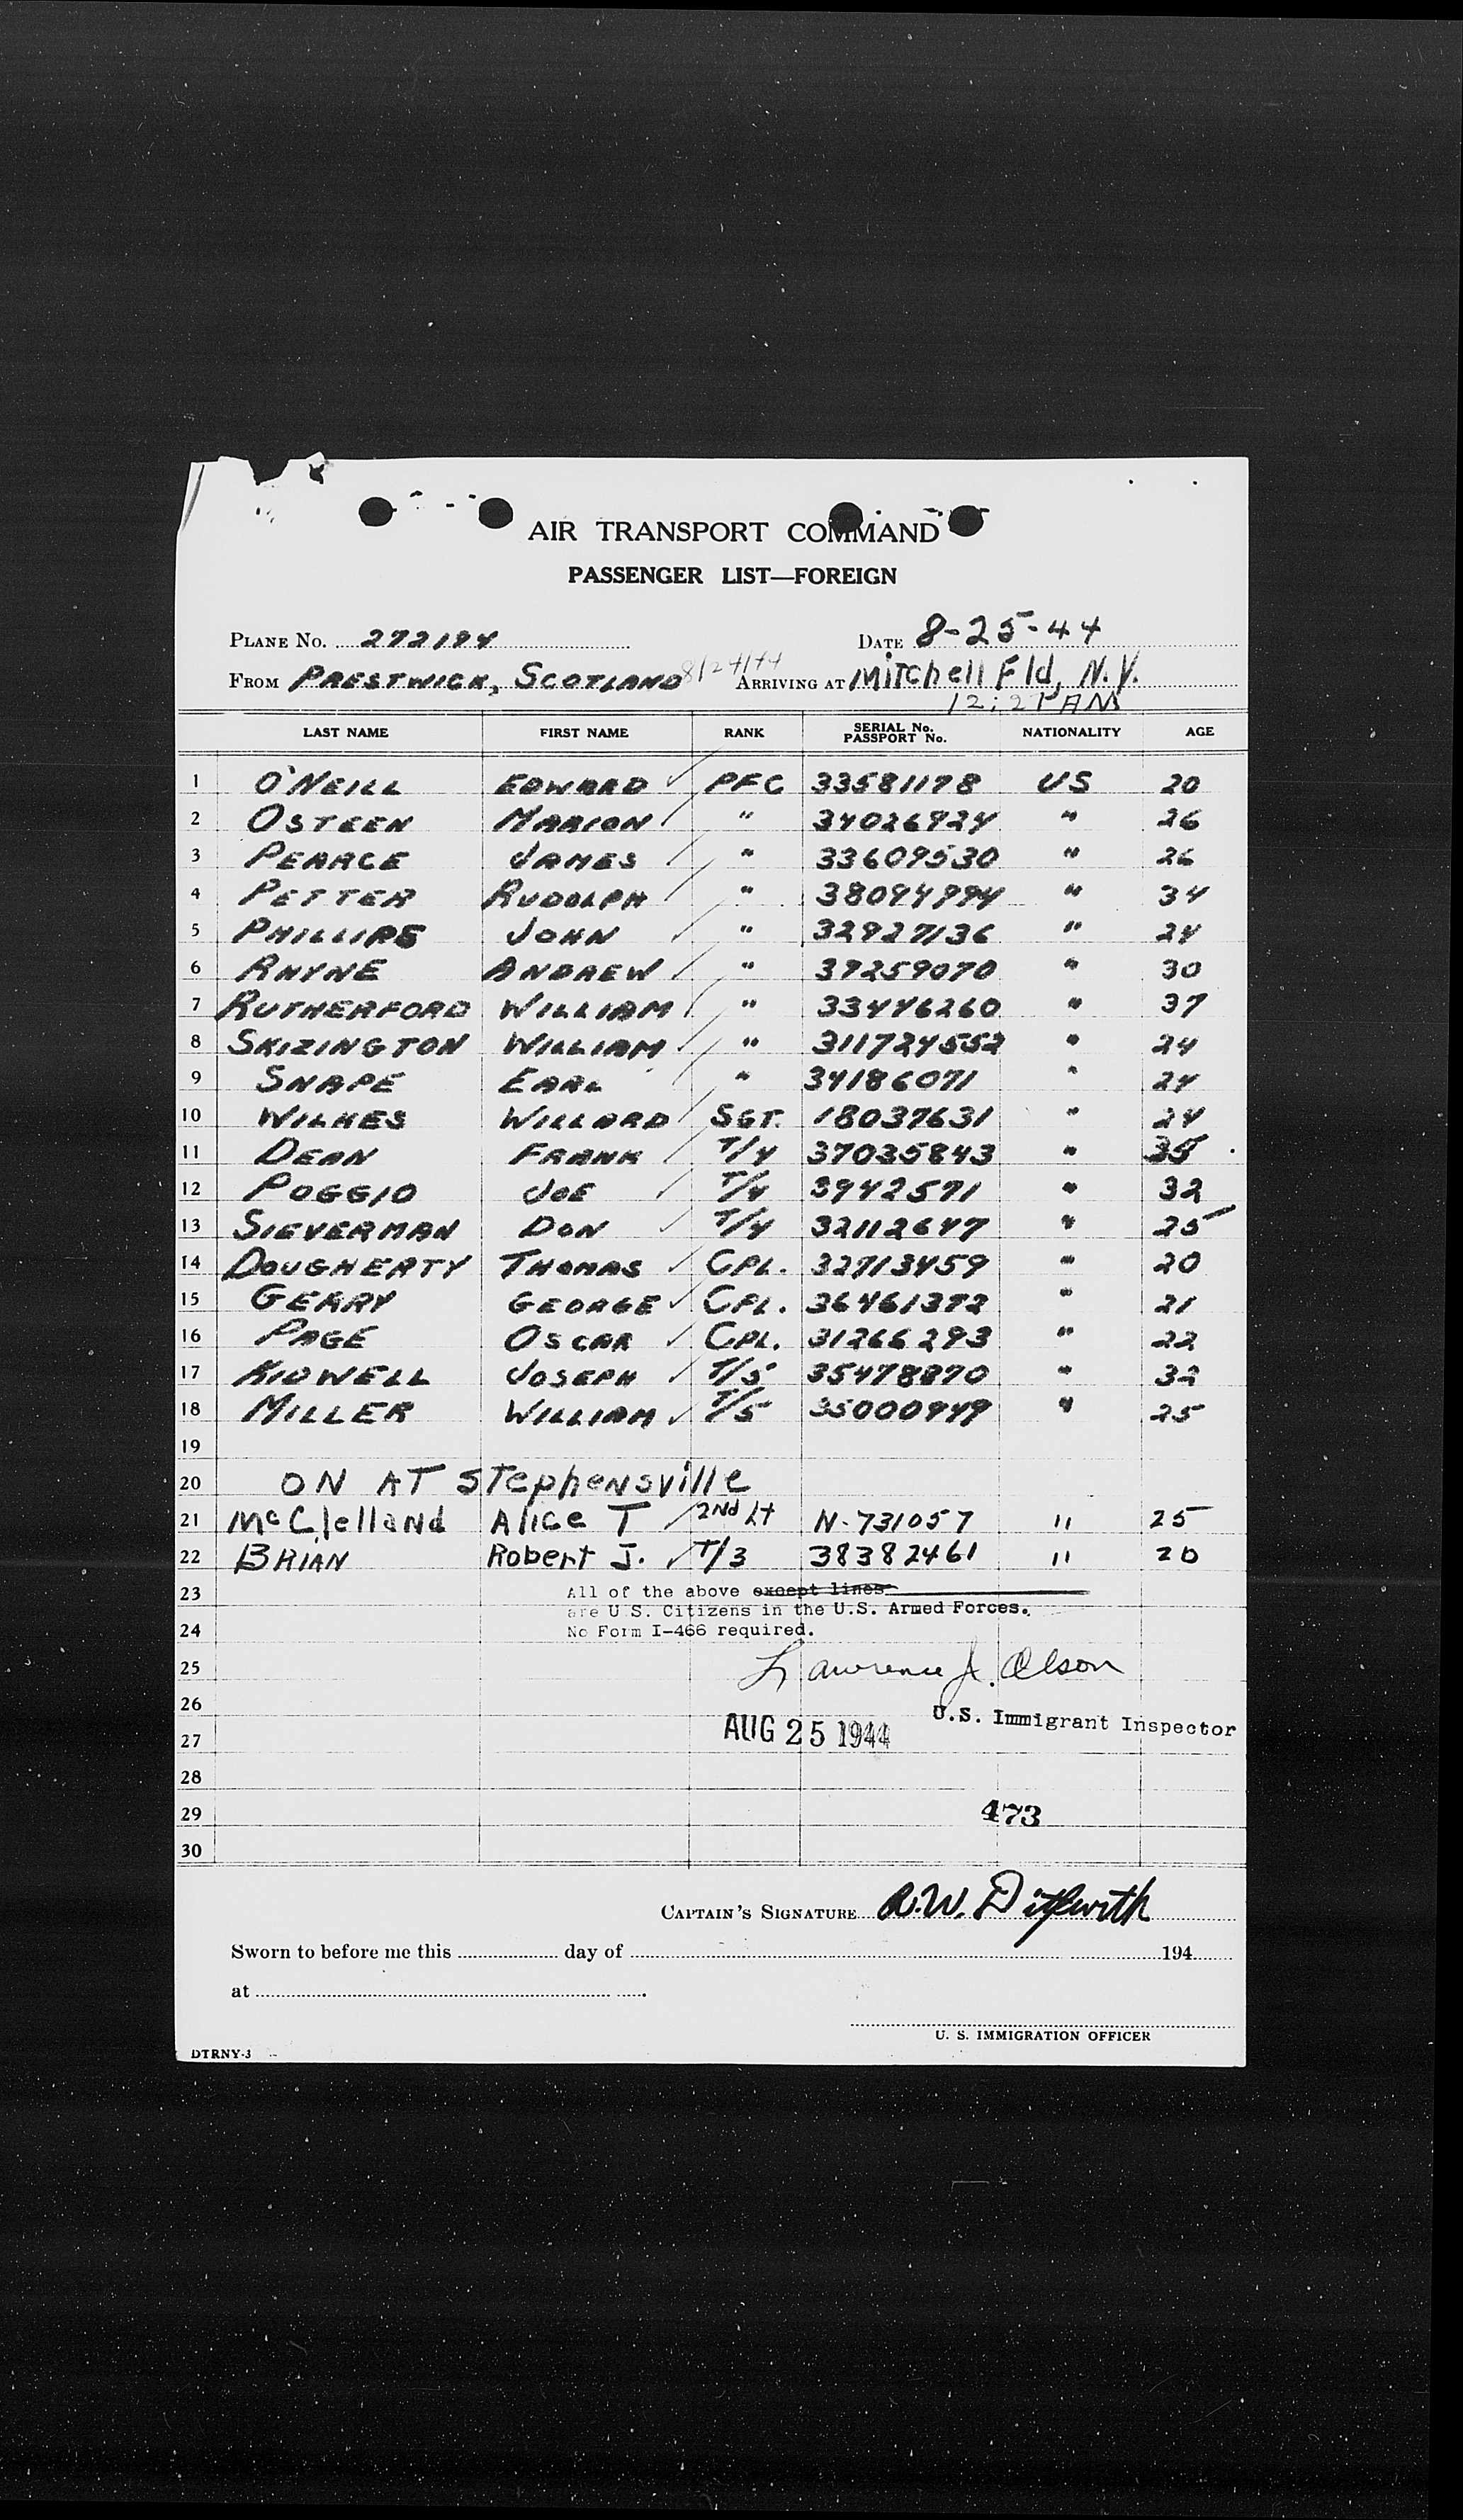 AIR TRANSPORT COMMAND
PASSENGER LIST—FOREIGN
PLANE No. 272194 DATE 8-25-44
FROM PRESTWICK, SCOTLAND 8/24/44 ARRIVING AT Mitchell Fld, N.Y.
12:21 AM
LAST NAME FIRST NAME RANK SERIAL No. PASSPORT No. NATIONALITY AGE
1 O'NEILL EDWARD PFC 33581178 US 20
2 OSTEEN MARION " 34026924 " 26
3 PEARCE JAMES " 33609530 " 26
4 PETTER RUDOLPH " 38094994 " 34
5 PHILLIPS JOHN " 32927136 " 24
6 RHYNE ANDREW " 39259070 " 30
7 RUTHERFORD WILLIAM " 33446260 " 37
8 SKIZINGTON WILLIAM " 311724552 " 24
9 SNAPE EARL " 34186071 " 24
10 WILKES WILLARD SGT. 18037631 " 24
11 DEAN FRANK T/4 37035843 " 35
12 POGGIO JOE T/4 3942571 " 32
13 SIEVERMAN DON T/4 32112647 " 25
14 DOUGHERTY THOMAS CPL. 32713459 " 20
15 GERRY GEORGE CPL. 36461372 " 21
16 PAGE OSCAR CPL. 31266293 " 22
17 KIDWELL JOSEPH T/5 35478870 " 32
18 MILLER WILLIAM T/5 35000949 " 25
19
20 ON AT STephensville
21 McClelland Alice T 2nd Lt N-731057 " 25
22 BRIAN Robert J. T/3 38382461 " 20
23 All of the above except lines
are U.S. Citizens in the U.S. Armed Forces.
24 No Form I-466 required.
25 Lawrence J. Olson
26 U.S. Immigrant Inspector
27 AUG 25 1944
28
29 473
30
CAPTAIN'S SIGNATURE R.W. Ditsworth
Sworn to before me this day of 194
at
U. S. IMMIGRATION OFFICER
DTRNY-3